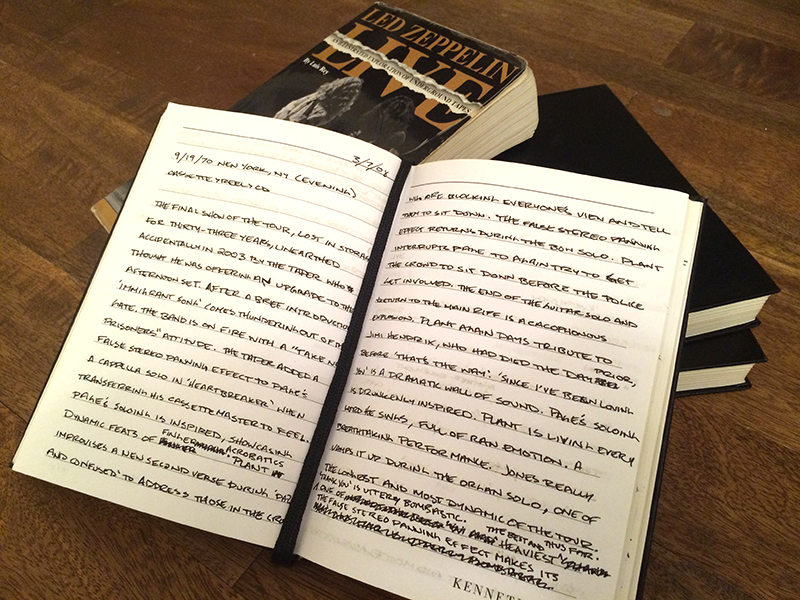 LED ZEPPELIN
LIVE
AN ILLUSTRATED EXPLORATION OF UNDERGROUND TAPES
By Luis Rey
3/7/08
9/19/70 NEW YORK, NY (EVENING)
CASSETTE > REEL > CD
THE FINAL SHOW OF THE TOUR, LOST IN STORAGE
FOR THIRTY-THREE YEARS, UNEARTHED
ACCIDENTALLY IN 2003 BY THE TAPER WHO
THOUGHT HE WAS OFFERING AN UPGRADE TO THE
AFTERNOON SET. AFTER A BRIEF INTRODUCTION
'IMMIGRANT SONG' COMES THUNDERING OUT OF THE
GATE. THE BAND IS ON FIRE WITH A "TAKE NO
PRISONERS" ATTITUDE. THE TAPER ADDED A
FALSE STEREO PANNING EFFECT TO PAGE'S
A CAPPELLA SOLO IN 'HEARTBREAKER' WHEN
TRANSFERRING HIS CASSETTE MASTER TO REEL.
PAGE'S SOLOING IS INSPIRED, SHOWCASING
DYNAMIC FEATS OF FINGER ACROBATICS. PLANT
IMPROVISES A NEW SECOND VERSE DURING 'DAZED
AND CONFUSED' TO ADDRESS THOSE IN THE CROWD
WHO ARE BLOCKING EVERYONE'S VIEW AND TELL
THEM TO SIT DOWN. THE FALSE STEREO PANNING
EFFECT RETURNS DURING THE BOW SOLO. PLANT
INTERRUPTS PAGE TO AGAIN TRY TO GET
THE CROWD TO SIT DOWN BEFORE THE POLICE
GET INVOLVED. THE END OF THE GUITAR SOLO AND
RETURN TO THE MAIN RIFF IS A CACOPHONOUS
EXPLOSION. PLANT AGAIN PAYS TRIBUTE TO
JIMI HENDRIX, WHO HAD DIED THE DAY PRIOR,
BEFORE 'THAT'S THE WAY'. 'SINCE I'VE BEEN LOVING
YOU' IS A DRAMATIC WALL OF SOUND. PAGE'S SOLOING
IS DRUNKENLY INSPIRED. PLANT IS LIVING EVERY
WORD HE SINGS, FULL OF RAW EMOTION. A
BREATHTAKING PERFORMANCE. JONES REALLY
VAMPS IT UP DURING THE ORGAN SOLO, ONE OF
THE LONGEST AND MOST DYNAMIC OF THE TOUR.
'THANK YOU' IS UTTERLY BOMBASTIC. THE BEST AND THUS FAR.
ONE OF HEAVIEST
THE FALSE STEREO PANNING EFFECT MAKES ITS
KENNETH